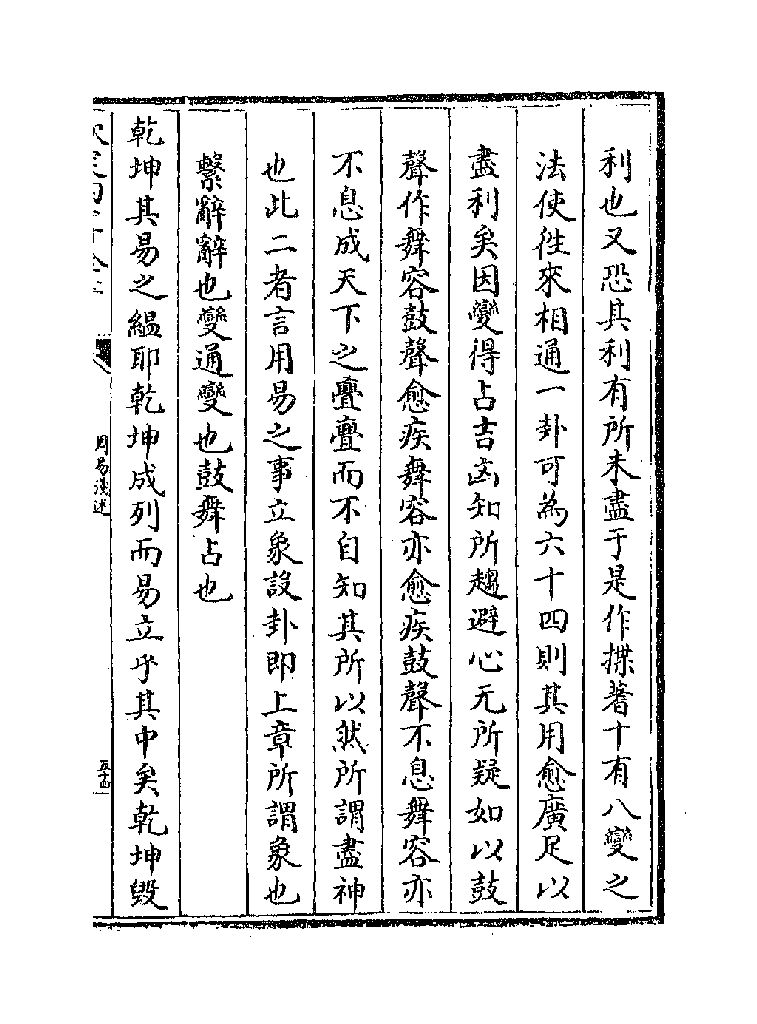 利也又恐其利有所未盡于是作揲蓍十有八變之
法使徃來相通一卦可為六十四則其用愈廣足以
盡利矣因變得占吉凶知所趨避心无所疑如以鼓
聲作舞容鼓聲愈疾舞容亦愈疾鼓聲不息舞容亦
不息成天下之亹亹而不自知其所以然所謂盡神
也此二者言用易之事立象設卦即上章所謂象也
繫辭辭也變通變也鼓舞占也
乾坤其易之緼耶乾坤成列而易立乎其中矣乾坤毀
周易淺述
五十四